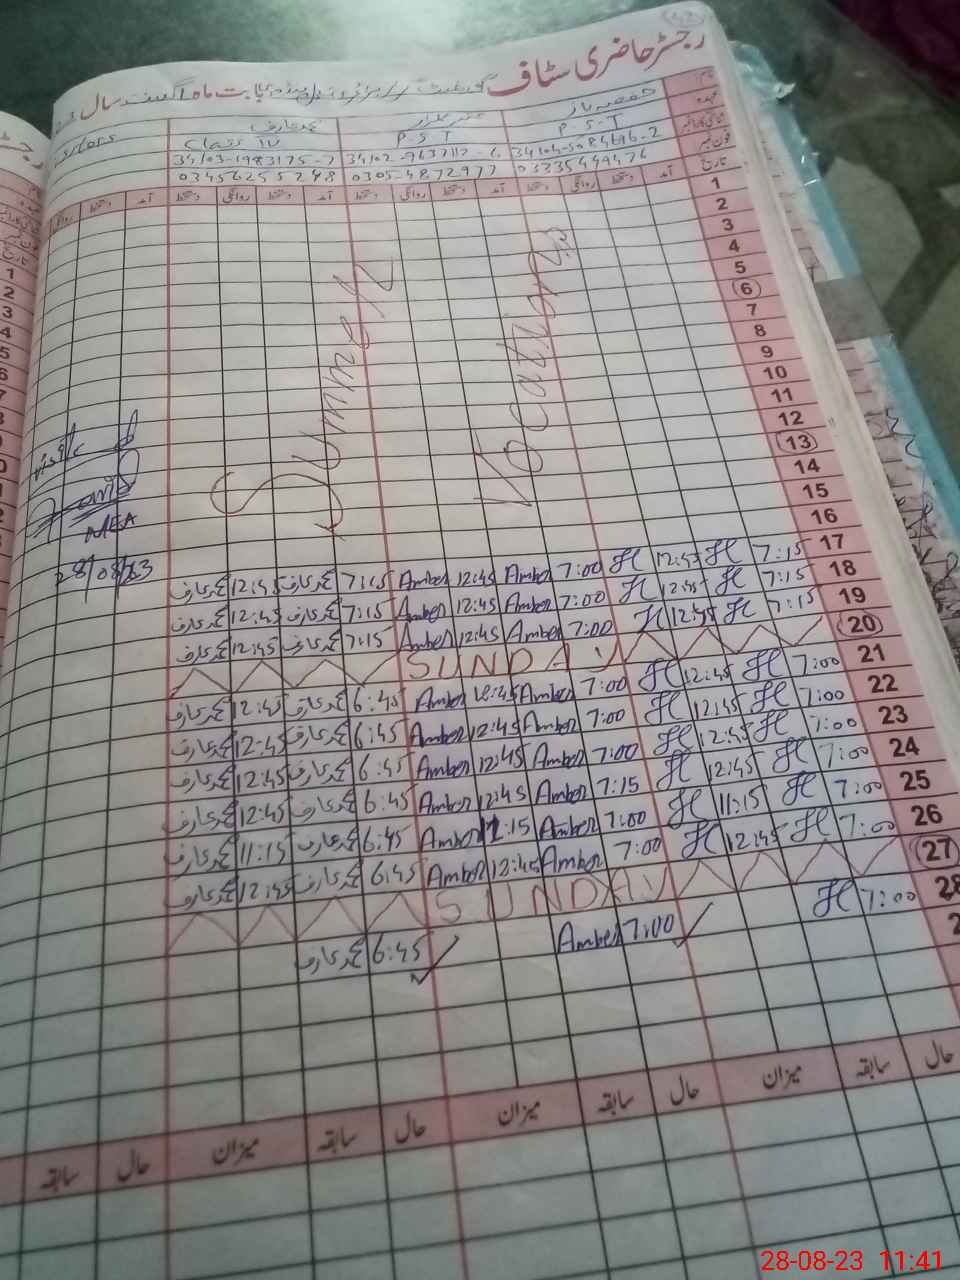 رجسٹر حاضری سٹاف
بابت ماہ اگست سال
محمد عارف
Class IV P-S-T P-S-T
34103-1983175-7 34102-9637112-6 34104-5084696-2
03456255248 0305-4872977 03335449476
دستخط روانگی دستخط آمد دستخط روانگی دستخط آمد دستخط روانگی دستخط آمد تاریخ
1
2
3
4
5
6
7
8
9
10
11
12
13
14
15
16
Summer
Vocations
MEA
28/08/23
محمد عارف 12:45 محمد عارف 7:15 Amber 12:45 Amber 7:00 H 12:45 H 7:15 17
محمد عارف 12:45 محمد عارف 7:15 Amber 12:45 Amber 7:00 H 12:45 H 7:15 18
محمد عارف 12:45 محمد عارف 7:15 Amber 12:45 Amber 7:00 H 12:45 H 7:15 19
SUNDAY 20
محمد عارف 12:45 محمد عارف 6:45 Amber 12:45 Amber 7:00 H 12:45 H 7:00 21
محمد عارف 12:45 محمد عارف 6:45 Amber 12:45 Amber 7:00 H 12:45 H 7:00 22
محمد عارف 12:45 محمد عارف 6:45 Amber 12:45 Amber 7:00 H 12:45 H 7:00 23
محمد عارف 12:45 محمد عارف 6:45 Amber 12:45 Amber 7:15 H 12:45 H 7:00 24
محمد عارف 11:15 محمد عارف 6:45 Amber 11:15 Amber 7:00 H 11:15 H 7:00 25
محمد عارف 12:45 محمد عارف 6:45 Amber 12:45 Amber 7:00 H 12:45 H 7:00 26
SUNDAY 27
محمد عارف 6:45 Amber 7:00 H 7:00 28
2
سابقہ حال میزان سابقہ حال میزان سابقہ حال میزان سابقہ حال
28-08-23 11:41